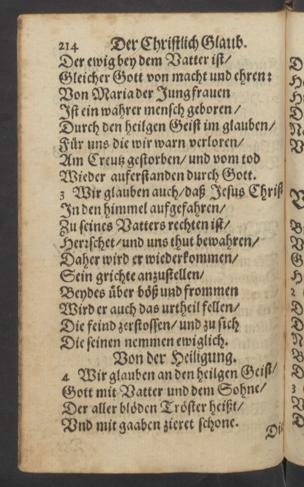 214 Der Christlich Glaub.
Der ewig bey dem Vatter ist/
Gleicher Gott von macht und ehren:
Von Maria der Jungfrauen
Ist ein wahrer mensch geboren/
Durch den heilgen Geist im glauben/
Für uns die wir warn verloren/
Am Creutz gestorben/ und vom tod
Wieder auferstanden durch Gott.
3 Wir glauben auch/ daß Jesus Christ
In den himmel aufgefahren/
Zu seines Vatters rechten ist/
Herrschet/ und uns thut bewahren/
Daher wird er wiederkommen/
Sein grichte anzustellen/
Beydes über böß und frommen
Wird er auch das urtheil fellen/
Die feind zerstossen/ und zu sich
Die seinen nemmen ewiglich.
Von der Heiligung.
4 Wir glauben an den heilgen Geist/
Gott mit Vatter und dem Sohne/
Der aller blöden Tröster heißt/
Und mit gaaben zieret schone.